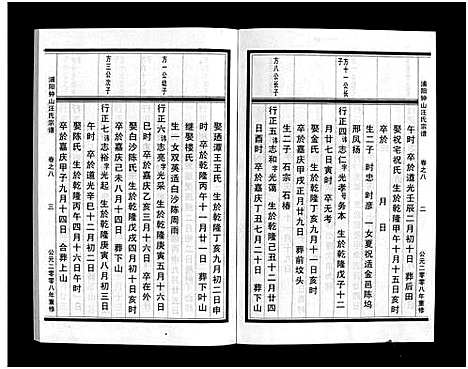 浦阳钟山汪氏宗谱
卷之八
二
公元二零零八年重修
午时 卒於道光壬辰二月初六日卯时 葬后田
娶祝宅祝氏 生於乾隆甲午十月十五日亥时
卒於 月 日
生二子 时忠 时彦 一女夏祝适金邑陈坞
邢凤扬
方十一公长子
行正四 讳志仁 字光孝 号务本 生於乾隆戊子十二
月廿七日寅时 卒无考
娶金氏 生於乾隆丁亥八月初一日亥时
卒於嘉庆甲戌正月廿九日 葬前坟头
生二子 石宗 石椿
方八公长子
行正五 讳志和 字光蔼 生於乾隆己丑十二月廿六
日酉时 卒於嘉庆丁丑七月二十日
娶珤潭王王氏 生於乾隆丁亥九月初二日申
时 卒於乾隆丙午十一月廿一日 葬下叶山
继娶楼氏
生一女双英适白沙陈周雨
方一公幼子
行正六 讳志亮 字光采 生於乾隆庚寅五月十六日
巳时 卒於嘉庆乙亥三月十六日 卒在外
娶白沙陈氏 生於乾隆戊戌四月初四日亥时
卒於嘉庆己未八月十四日 葬下山
方三公次子
行正七 讳志 字光起 生於乾隆庚寅八月初三日
午时 卒於道光辛巳十二月初二日
娶陈氏 生於乾隆丙申四月十六日午时
卒於嘉庆甲子九月十四日 合葬上山
浦阳钟山汪氏宗谱
卷之八
三
公元二零零八年重修